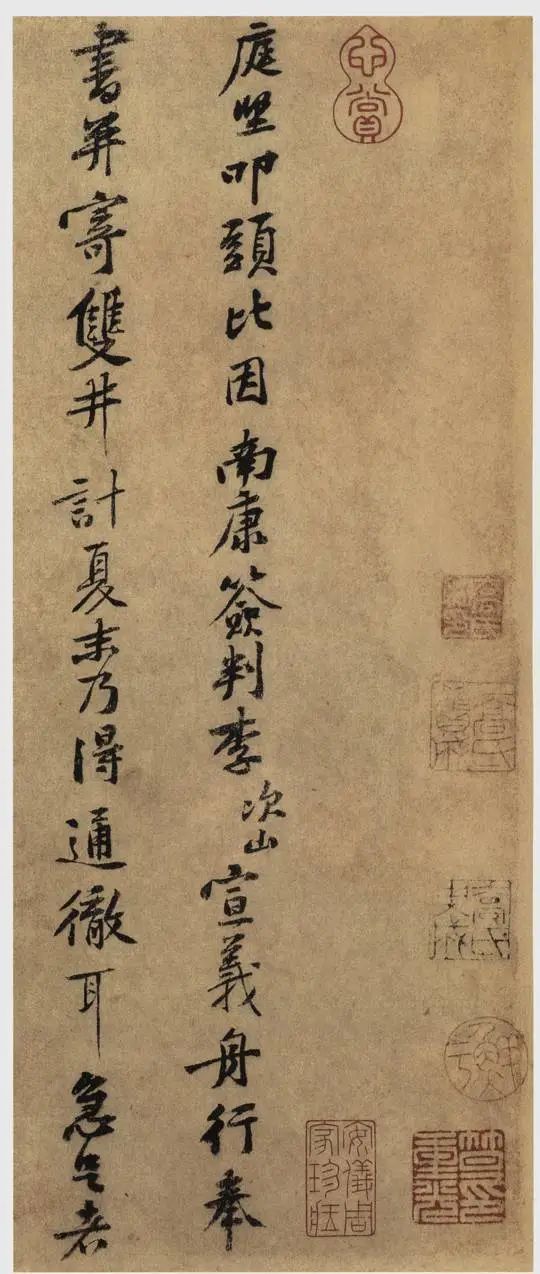 心賞
安儀周家珍藏
庭堅叩頭比因南康簽判李次山宣義舟行奉
書并寄雙井計夏末乃得通徹耳急足者